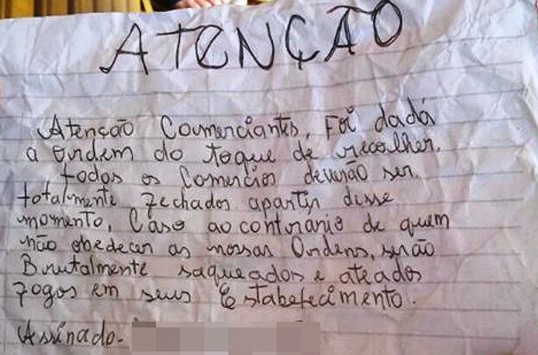 ATENÇÃO
Atenção Comerciantes, Foi dadá
a ordem do toque de recolher.
todos os Comercios deverão ser
totalmente fechados apartir disse
momento, Caso ao contrario de quem
não obedecer as nossas Ordens, serão
Brutalmente saqueados e ateados
fogos em seus Estabefecimento.
Assinado-